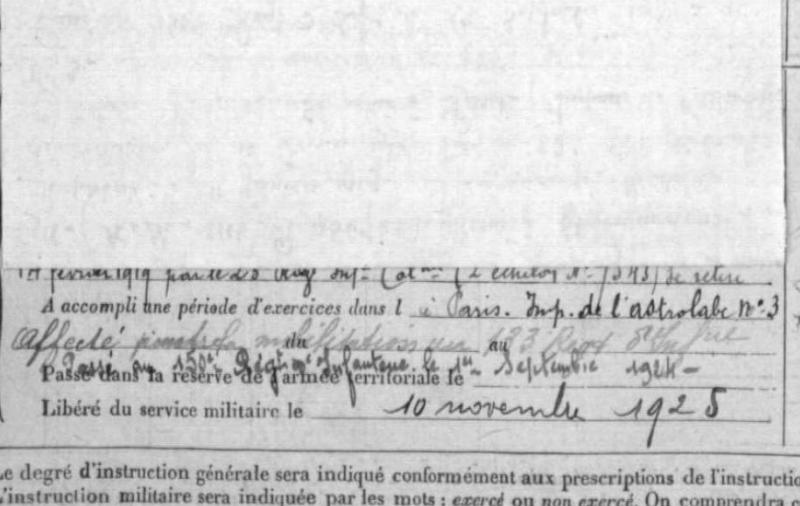 février 1919 par le 23 Inf. Col. (2e échelon No 1343) se retire
A accompli une période d'exercices dans l à Paris. Imp. de l'astrolabe No. 3
du au
Affecté mobilisation au 123 Reg d'Inf
Passé au 150e Régt d'Infanterie le 1er Septembre 1924 -
Passé dans la réserve de l'armée territoriale le
Libéré du service militaire le 10 novembre 1925
Le degré d'instruction générale sera indiqué conformément aux prescriptions de l'instructio
L'instruction militaire sera indiquée par les mots : exercé ou non exercé. On comprendra c